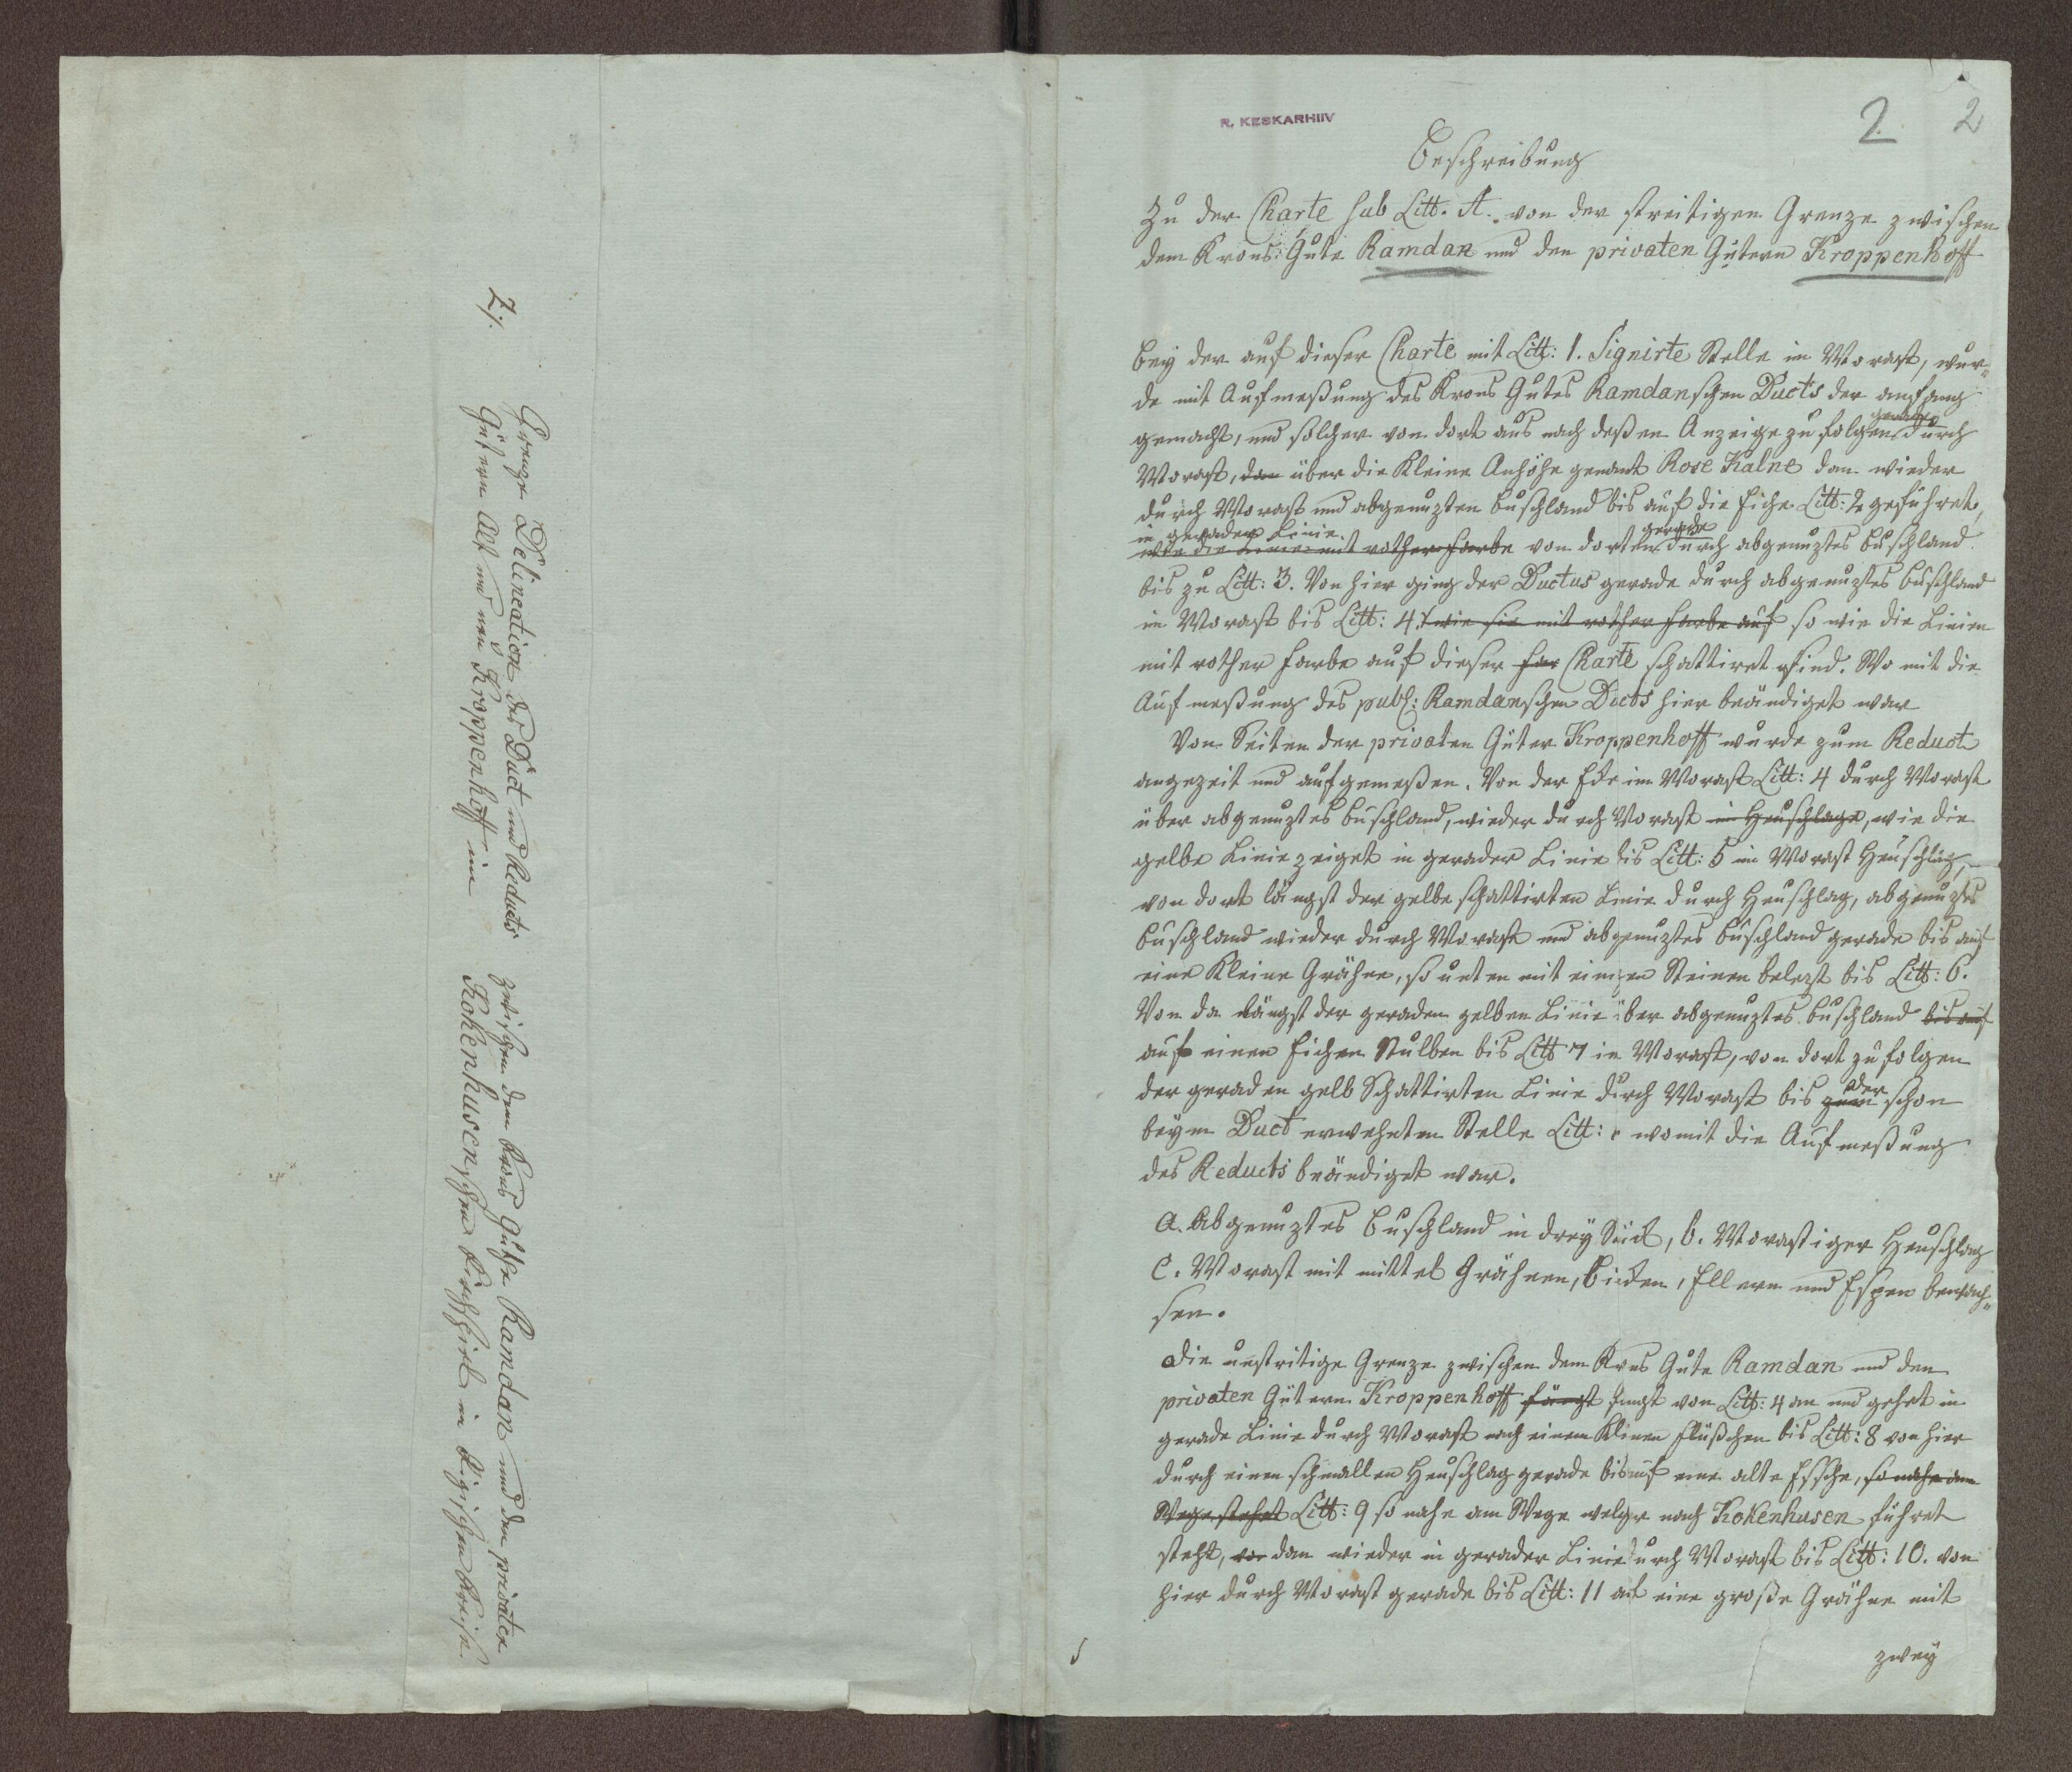 Z/.
Grenze Delineation des Duct und Reducts zwischen dem Krons Guthe Ramdan und den privaten
Gütern Alt und neu Kroppenhoff im Kokenhusenschen Kirchspiel im Rigischen Kreise.
R. KESKARHIIV
2 2
Beschreibung
Zu der Charte sub Litt. A. von der streitigen Grenze zwischen
dem Krons: Gute Ramdan und den privaten Gütern Kroppenhoff
Bey der auf dieser Charte mit Litt: 1. Signirte Stelle im Morast, wur„
de mit Aufmeßung des Krons Gutes Ramdanschen Ducts der anfang
gemacht, und solcher von dort aus nach deßen Anzeige zu folgen gerade durch
Morast, dan über die Kleine Anhöhe genant Rose Kalne dan wieder
durch Morast und abgenuztes Buschland bis auf die Eiche Litt: 2 geführet,
in gerader Linie gerade
wie die Linie mit rother Farbe von dorten durch abgenuztes Buschland
bis zu Litt: 3. Von hier ging der Ductus gerade durch abgenuztes Buschland
im Morast bis Litt: 4. wie sie mit rother Farbe auf so wie die Linien
mit rother Farbe auf dieser Far Charte schattiret sind. Wo mit die
Aufmeßung des publ: Ramdanschen Ducts hier beändiget war
Von Seiten der privaten Güter Kroppenhoff wurde zum Reduct
angezeit und aufgemeßen. Von der Ecke im Morast Litt: 4 durch Morast
über abgenuztes Buschland, wieder durch Morast im Heuschlage, wie die
gelbe Linie zeiget in gerader Linie bis Litt: 5 im Morast Heuschlag,
von dort längst der gelbe schattirten Linie durch Heuschlag, abgenuztes
Buschland wieder durch Morast und abgenuztes Buschland gerade bis auf
eine Kleine Grähne, so unten mit einigen Steinen belegt bis Litt: 6.
Von da längst der geraden gelben Linie über abgenuztes Buschland bis auf
auf einen Eichen Stubben bis Litt 7 im Morast, von dort zu folgen
der geraden gelb Schattirten Linie durch Morast bis zum der schon
beym Duct erwehnten Stelle Litt: 1 womit die Aufmeßung
des Reducts beändiget war.
a. Abgenuztes Buschland in drey Stück, b. Morastiger Heuschlag
C. Morast mit mittel Grähnen, Birken, Ellern und Espen bewach„
sen.
Die unstritige Grenze zwischen dem Krons Gute Ramdan und den
privaten Gütern Kroppenhoff fängt fangt von Litt: 4 an und gehet in
gerade Linie durch Morast nach einem Kleinen Flüßchen bis Litt: 8 von hier
durch einen schmallen Heuschlag gerade bis auf eine alte Esche, so nahe am
Wege stehet Litt: 9 so nahe am Wege welcher nach Kokenhusen führet
steht, von dan wieder in gerader Linie durch Morast bis Litt: 10. von
hier durch Morast gerade bis Litt: 11 auf eine große Grähne mit
zwey